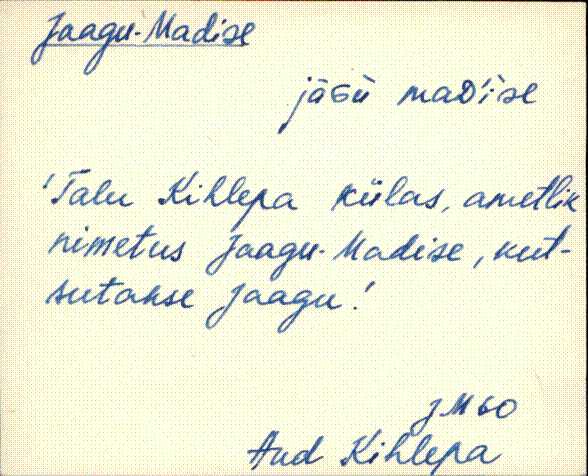 Jaagu-Madise
jāGù maD'ise
'Talu Kihlepa külas, ametlik
nimetus Jaagu-Madise, kut-
sutakse Jaagu!
JM 60
Aud Kihlepa